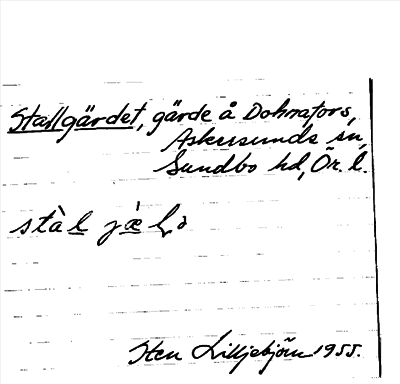 Stallgärdet, gärde å Dohnafors,
Askersunds sn,
Sundbo hd, Ör. l.
stàl jæ̀
Sten Lilljebjörn 1955.